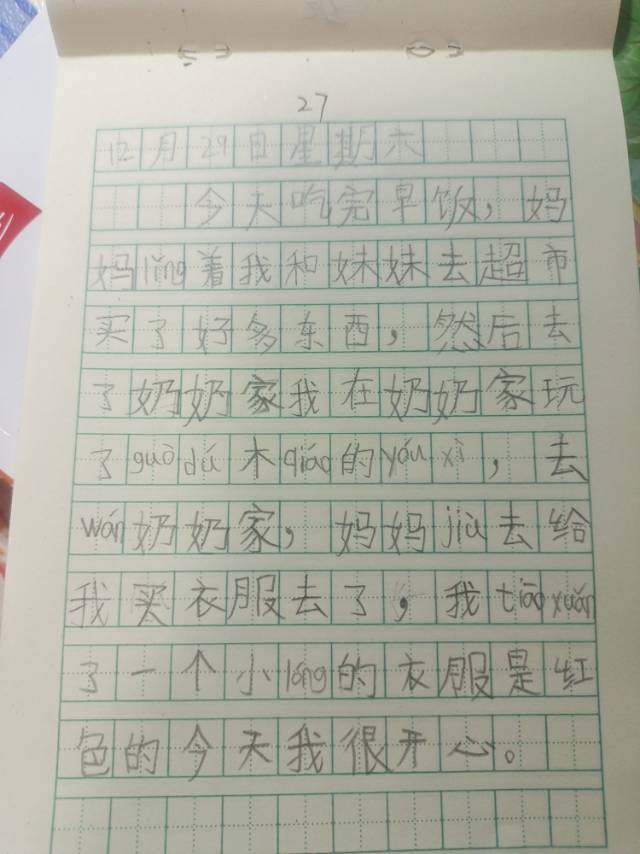 27
12月29日星期六
今天吃完早饭，妈
妈lǐng着我和妹妹去超市
买了好多东西，然后去
了奶奶家我在奶奶家玩
了guò dú木qiáo的yóu xì，去
wán奶奶家，妈妈jiù去给
我买衣服去了，我tiāo xuǎn
了一个小lóng的衣服是红
色的今天我很开心。